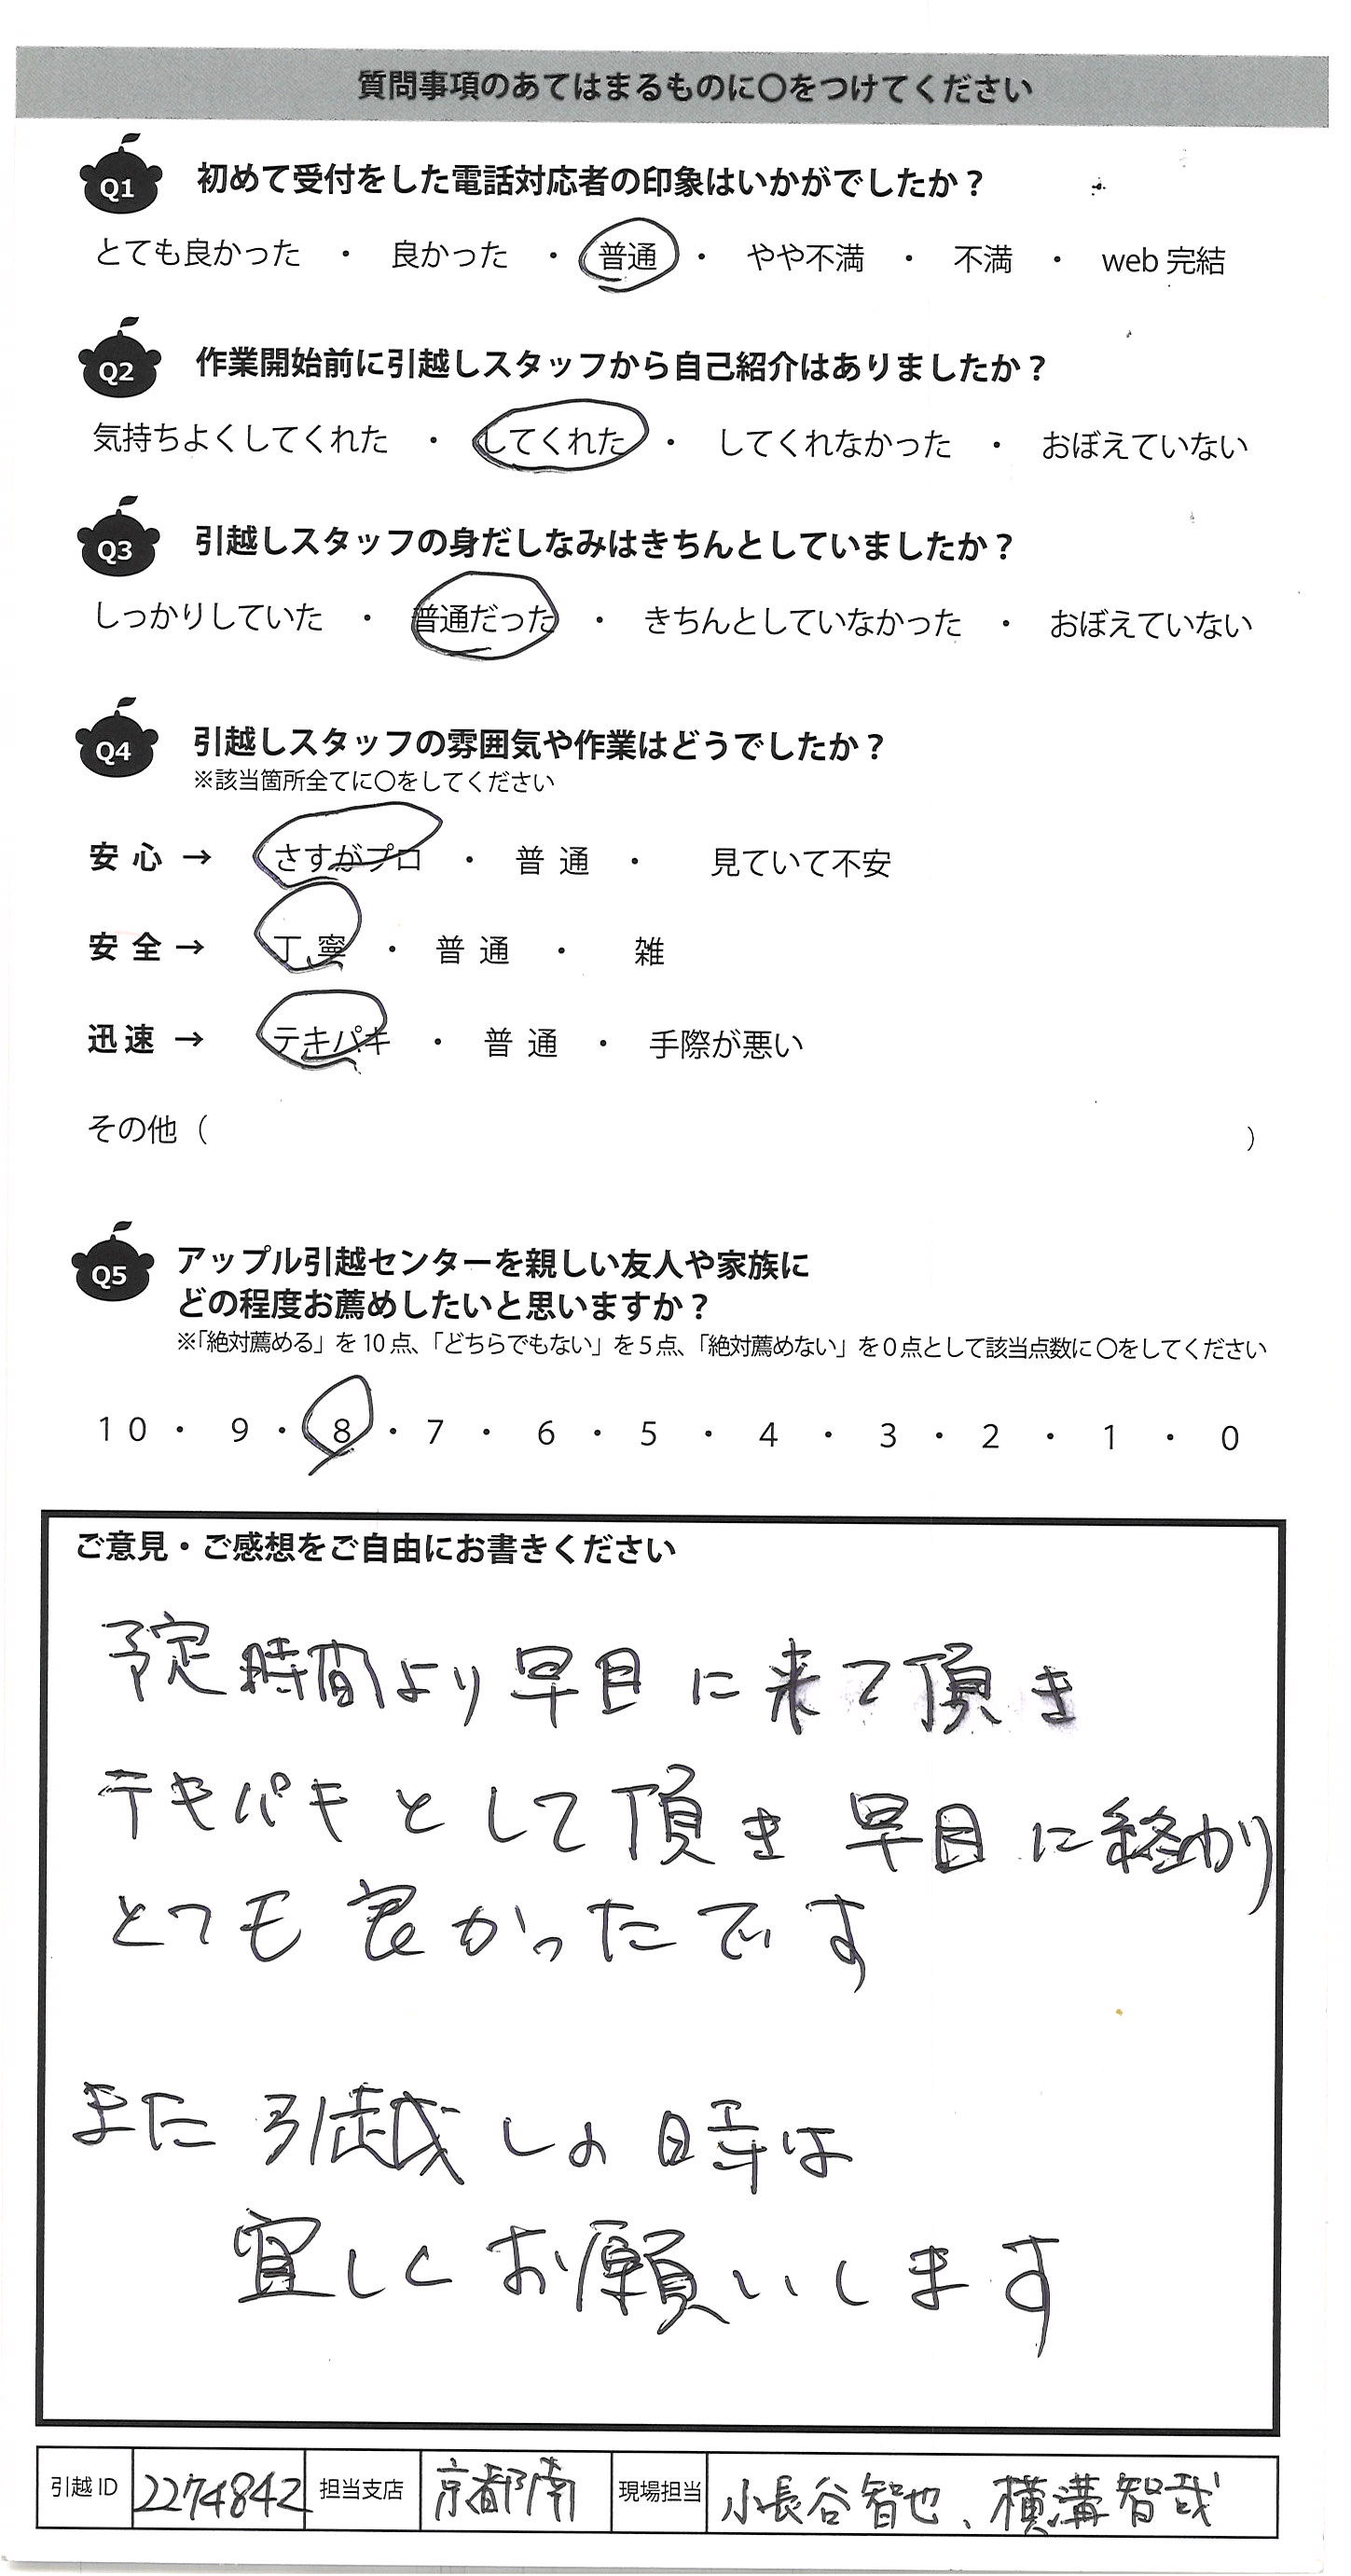 質問事項のあてはまるものに〇をつけてください
Q1 初めて受付をした電話対応者の印象はいかがでしたか？
とても良かった ・ 良かった ・ 普通 ・ やや不満 ・ 不満 ・ web 完結
Q2 作業開始前に引越しスタッフから自己紹介はありましたか？
気持ちよくしてくれた ・ してくれた ・ してくれなかった ・ おぼえていない
Q3 引越しスタッフの身だしなみはきちんとしていましたか？
しっかりしていた ・ 普通だった ・ きちんとしていなかった ・ おぼえていない
Q4 引越しスタッフの雰囲気や作業はどうでしたか？
※該当箇所全てに〇をしてください
安心 → さすがプロ ・ 普通 ・ 見ていて不安
安全 → 丁寧 ・ 普通 ・ 雑
迅速 → テキパキ ・ 普通 ・ 手際が悪い
その他（ ）
Q5 アップル引越センターを親しい友人や家族に
どの程度お薦めしたいと思いますか？
※「絶対薦める」を10点、「どちらでもない」を5点、「絶対薦めない」を0点として該当点数に〇をしてください
10 ・ 9 ・ 8 ・ 7 ・ 6 ・ 5 ・ 4 ・ 3 ・ 2 ・ 1 ・ 0
ご意見・ご感想をご自由にお書きください
予定時間より早目に来て頂き
テキパキとして頂き 早目に終わり
とても良かったです
また引越しの時は
宜しくお願いします
引越ID 2274842 担当支店 京都南 現場担当 小長谷智也、横溝智哉